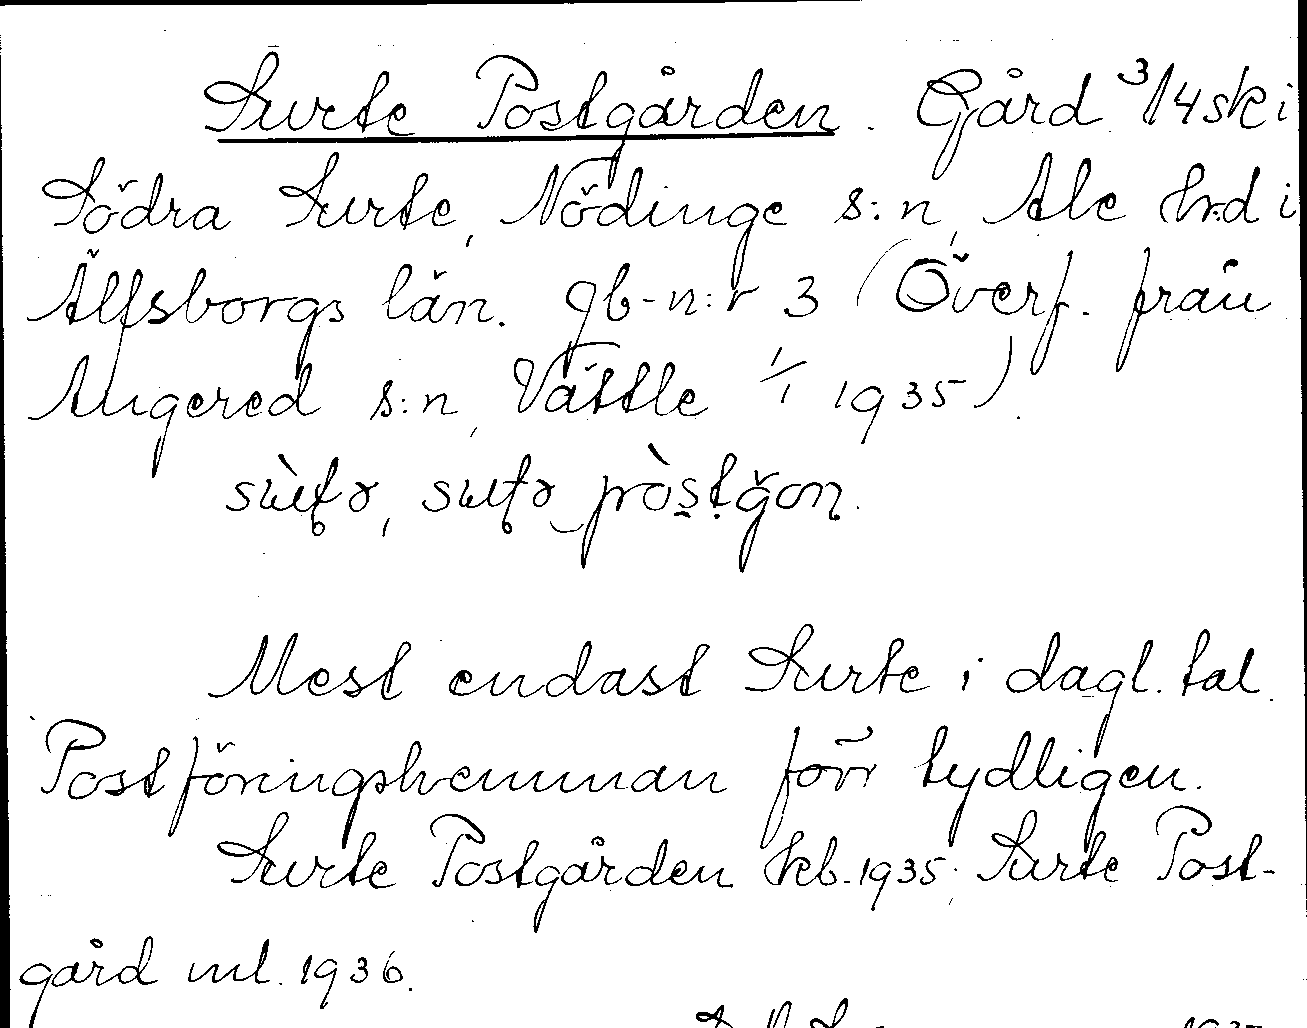 Surte Postgården. Gård 3/4 sk i
Södra Surte, Nödinge s:n, Ale hd i
Älfsborgs län. Jb-n:r 3 (Överf. från
Angered s:n, Vättle 1/1 1935).
Mest endast Surte i dagl. tal.
Postföringshemman förr tydligen.
Surte Postgården tkb. 1935; Surte Post-
gård ml. 1936.